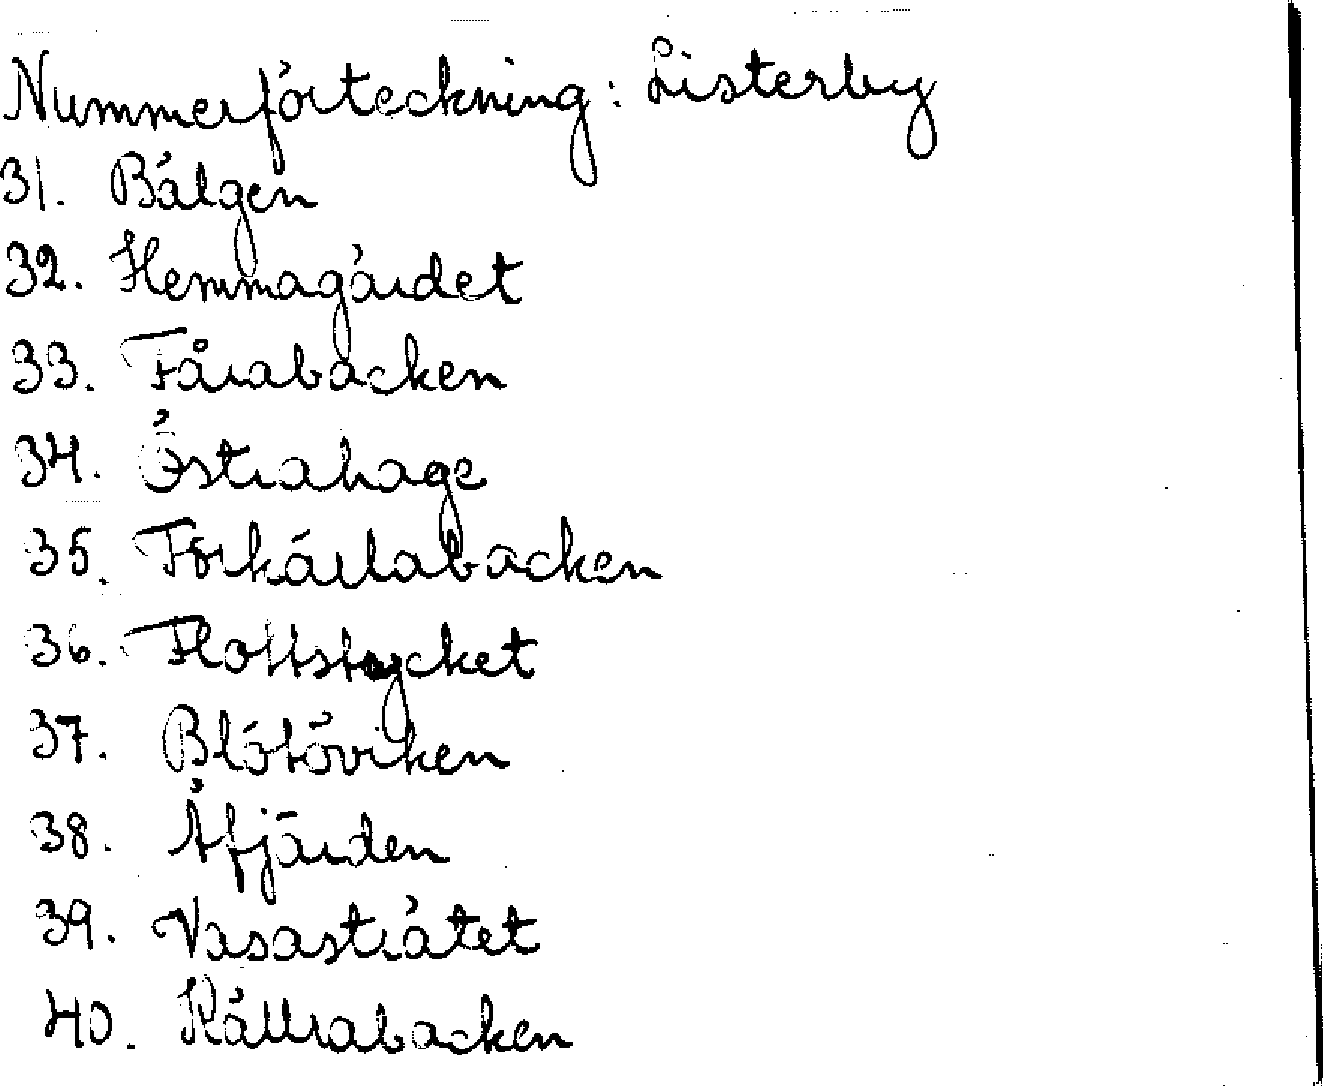 Nummerförteckning: Listerby
31. Bälgen
32. Hemmagärdet
33. Fårabacken
34. Östrahage
35. Förkärlabacken
36. Flottstycket
37. Blötöviken
38. Åfjärden
39. Vasastråtet
40. Källrabacken